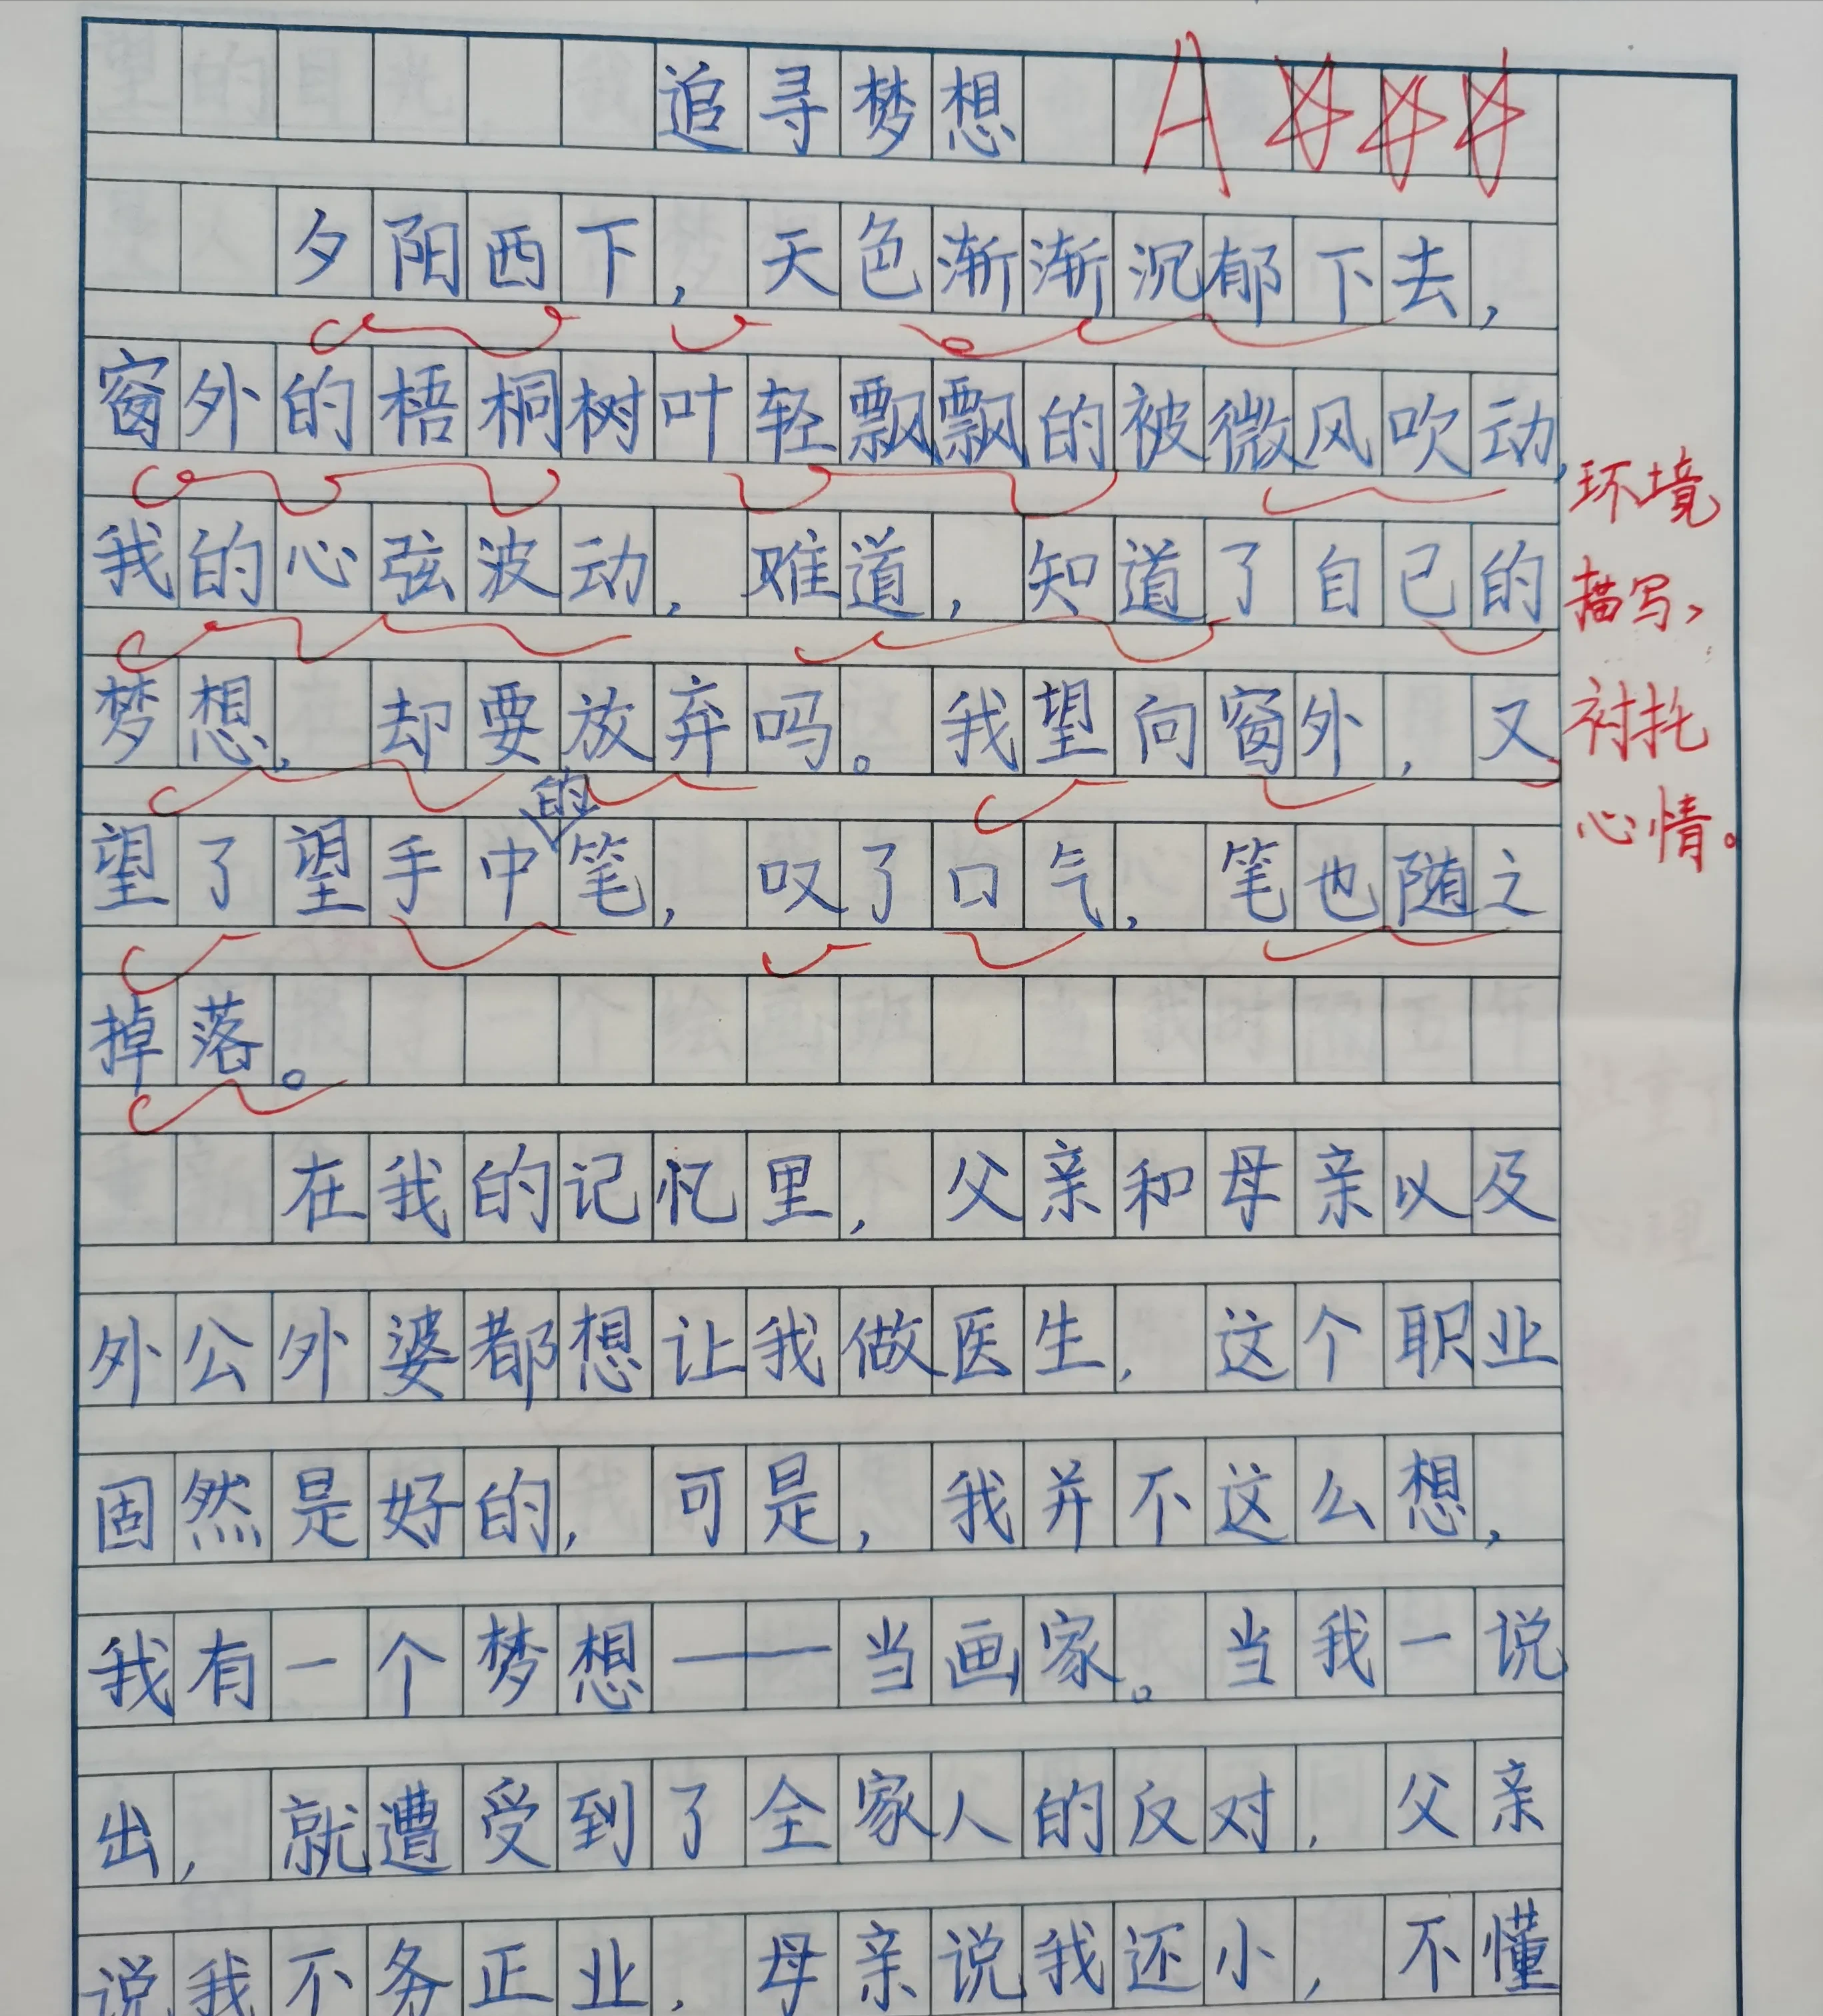 追寻梦想 A
夕阳西下，天色渐渐沉郁下去，
窗外的梧桐树叶轻飘飘的被微风吹动，
我的心弦波动，难道，知道了自己的
梦想，却要放弃吗。我望向窗外，又
望了望手中的笔，叹了口气，笔也随之
掉落。
在我的记忆里，父亲和母亲以及
外公外婆都想让我做医生，这个职业
固然是好的，可是，我并不这么想，
我有一个梦想——当画家。当我一说
出，就遭受到了全家人的反对，父亲
说我不务正业，母亲说我还小，不懂
环境
描写，
衬托
心情。